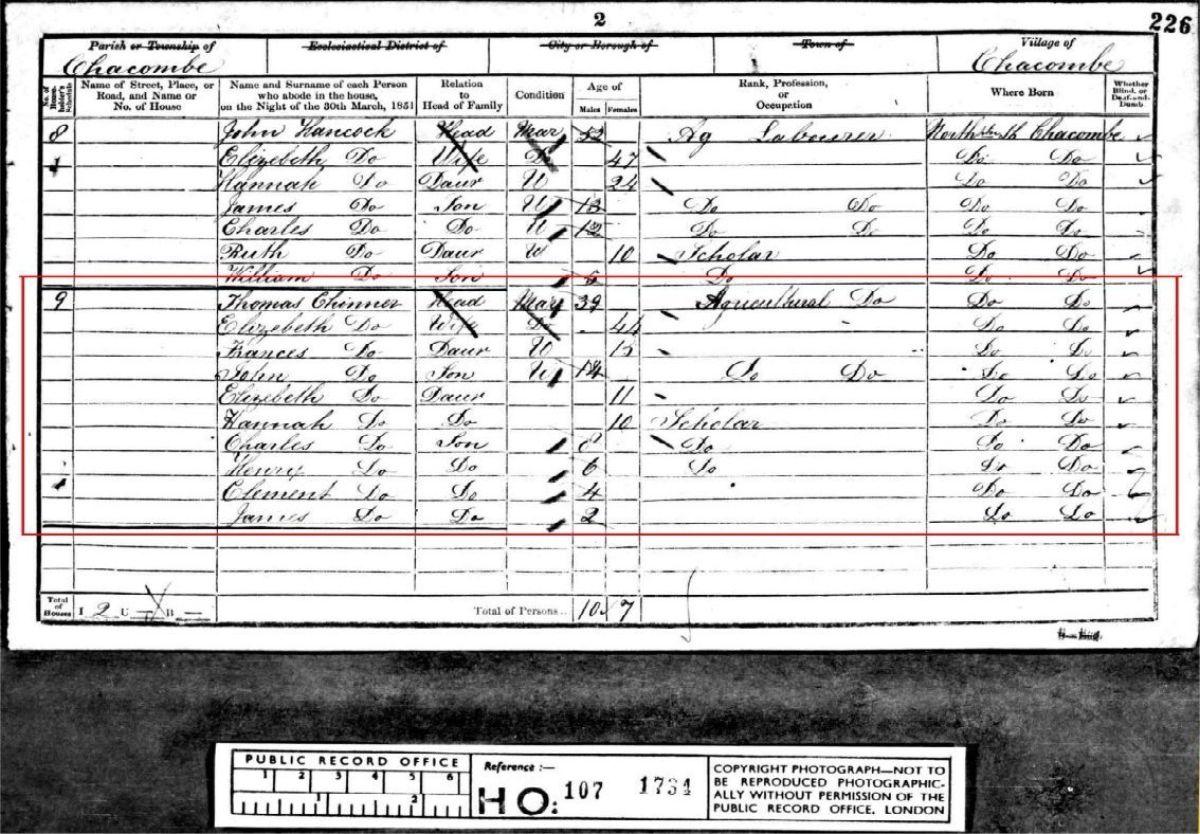 2
226
Parish or Township of Ecclesiastical District of City or Borough of Town of Village of
Chacombe Chacombe
No. of House-holder's Schedule
Name of Street, Place, or Road, and Name or No. of House
Name and Surname of each Person who abode in the house, on the Night of the 30th March, 1851
Relation to Head of Family
Condition
Age of
Males Females
Rank, Profession, or Occupation
Where Born
Whether Blind, or Deaf-and-Dumb
8 John Hancock Head Mar 52 Ag Labourer North Chacombe
1 Elizebeth Do Wife Do 47 Do Do
Hannah Do Daur U 24 Do Do
James Do Son U 13 Do Do Do Do
Charles Do Do U 12 Do Do Do Do
Ruth Do Daur U 10 Scholar Do Do
William Do Son 6 Do Do Do
9 Thomas Chinner Head Mar 39 Agricultural Do Do Do
Elizebeth Do Wife Do 44 Do Do
Frances Do Daur U Do Do
John Do Son U 14 Do Do Do Do
Elizebeth Do Daur 11 Do Do
Hannah Do Do 10 Scholar Do Do
Charles Do Son 8 Do Do Do
Henry Do Do 6 Do Do Do
Clement Do Do 4 Do Do
James Do Do 2 Do Do
Total of Houses I 2 U B Total of Persons.. 10 7
PUBLIC RECORD OFFICE
1 2 3 4 5 6
1 2
Reference :—
HO: 107 1734
COPYRIGHT PHOTOGRAPH—NOT TO
BE REPRODUCED PHOTOGRAPHIC-
ALLY WITHOUT PERMISSION OF THE
PUBLIC RECORD OFFICE, LONDON